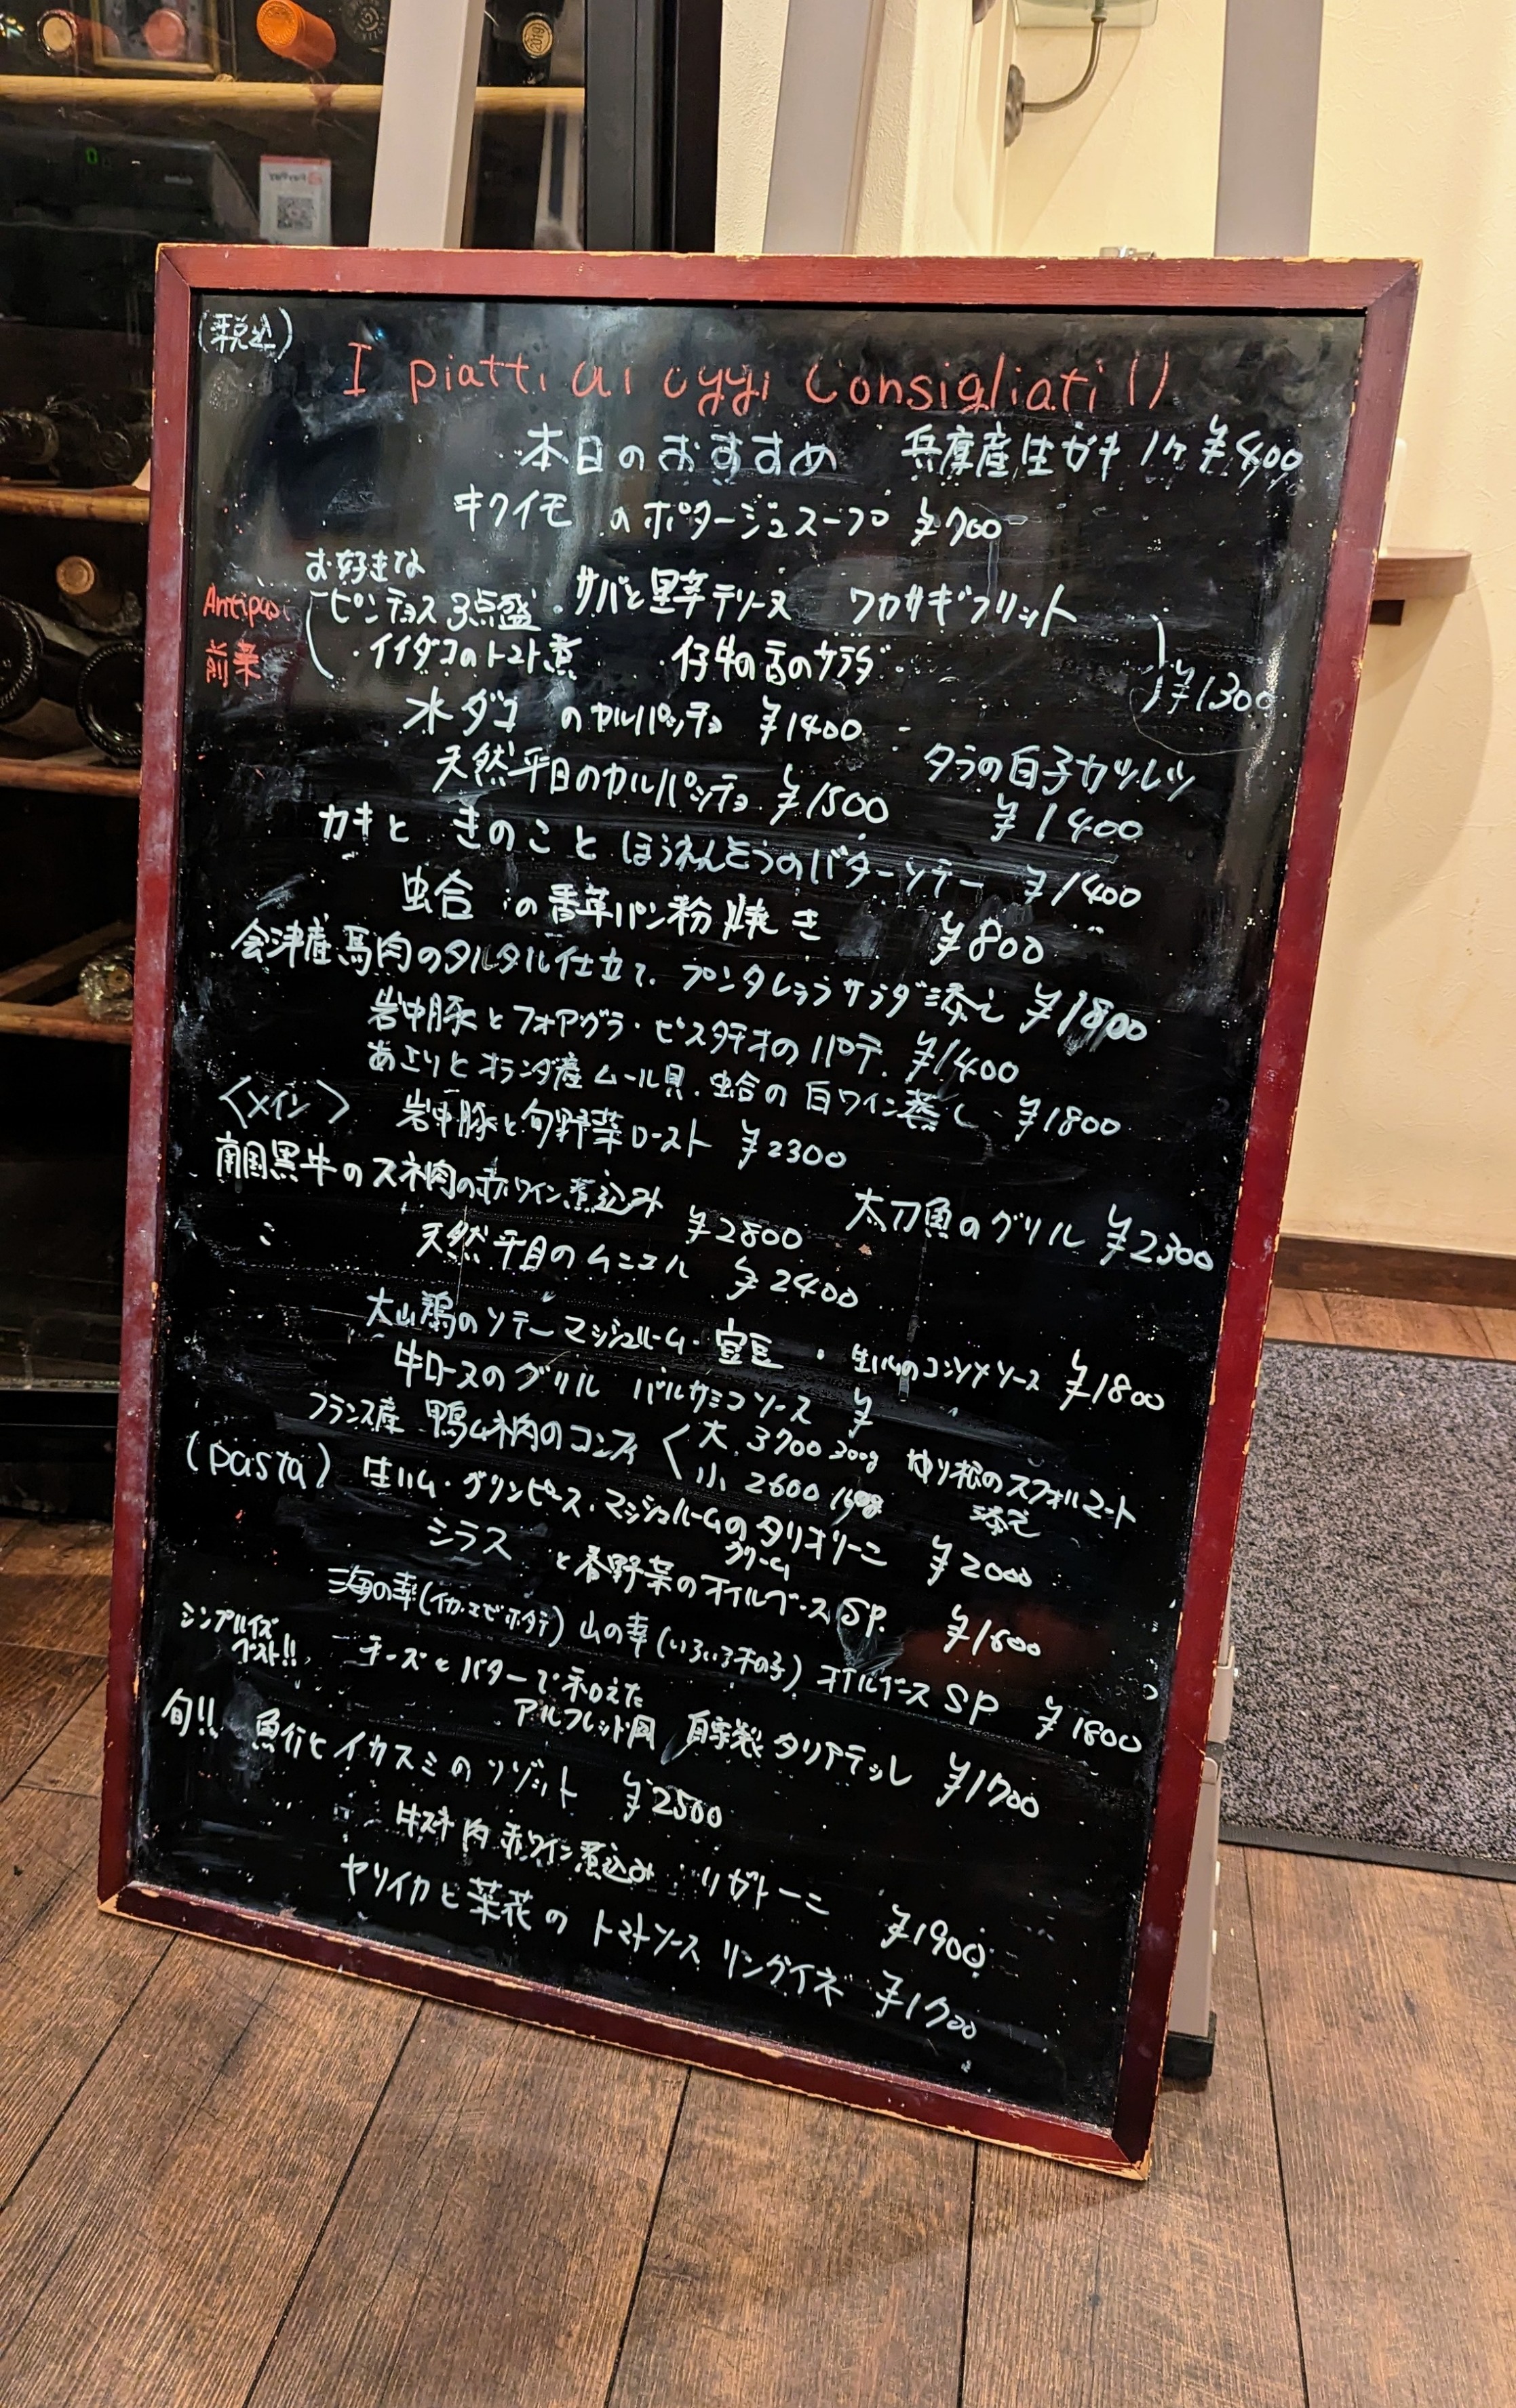 (税込)
I piatti di oggi Consigliati !!
本日のおすすめ 兵庫産生ガキ 1ケ ¥400
キクイモ のポタージュスープ ¥700
お好きな
Antipas 前菜
ピンチョス3点盛 ・サバと里芋テリーヌ ワカサギフリット
・イイダコのトマト煮 ・仔牛の舌のサラダ ¥1300
水ダコ のカルパッチョ ¥1400
天然平目のカルパッチョ ¥1500
タラの白子カツレツ
¥1400
カキと きのこと ほうれんそうのバターソテー ¥1400
蛤 の香草パン粉焼き ¥800
会津産馬肉のタルタル仕立て、プンタレッラサラダ添え ¥1800
岩中豚とフォアグラ・ピスタチオのパテ. ¥1400
あさりとオランダ産ムール貝.蛤の白ワイン蒸し ¥1800
〈メイン〉 岩中豚と旬野菜ロースト ¥2300
南国黒牛のスネ肉の赤ワイン煮込み ¥2800
太刀魚のグリル ¥2300
天然平目のムニエル ¥2400
大山鶏のソテー マッシュルーム・空豆・生ハムのコンソメソース ¥1800
牛ロースのグリル バルサミコソース ¥
フランス産 鴨ムネ肉のコンフィ 〈大 3700 300g
小 2600
ゆり根のスフォルマート
添え
(pasta) 生ハム・グリンピース・マッシュルームのタリオリーニ ¥2000
クリーム
シラス と春野菜のオイルベース SP. ¥1600
海の幸(イカ・エビ・ホタテ) 山の幸(いろいろ木の子) オイルベース SP ¥1800
シンプルイズ
ベスト!!
チーズとバターで和えた
アルフレッド風 自家製 タリアテッレ ¥1700
旬!! 魚介とイカスミのリゾット ¥2500
牛スネ肉 赤ワイン煮込み リガトーニ ¥1900
ヤリイカと菜花の トマトソース リングイネ ¥1700